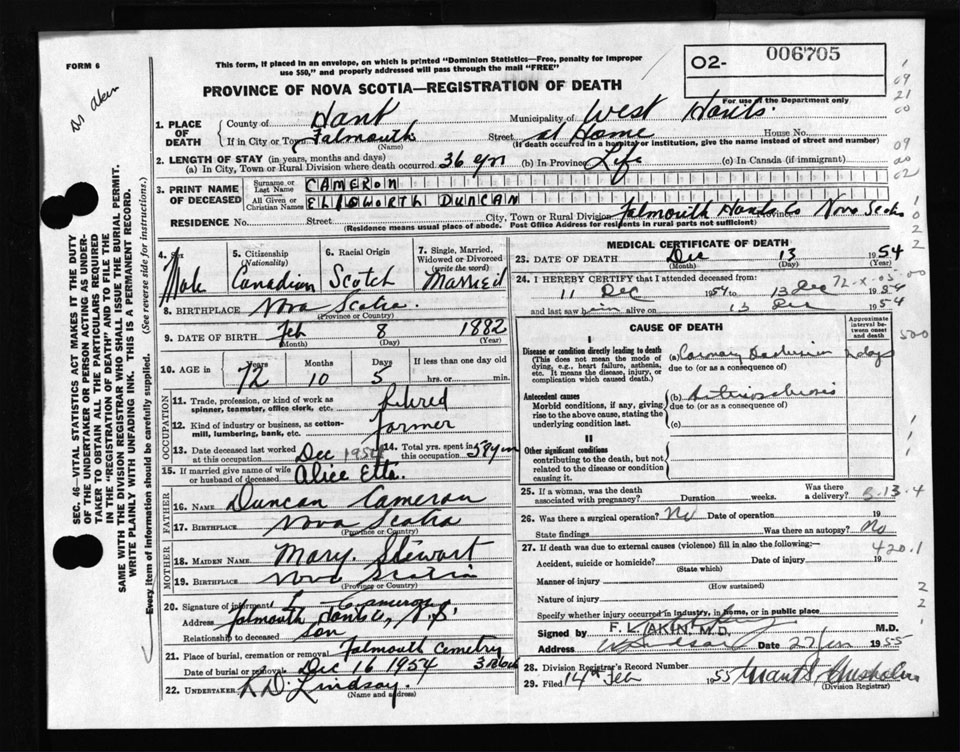 FORM 6
This form, if placed in an envelope, on which is printed "Dominion Statistics—Free, penalty for improper
use $50," and properly addressed will pass through the mail "FREE"
O2- 006705
For use of the Department only
PROVINCE OF NOVA SCOTIA—REGISTRATION OF DEATH
Dr Akin
1. PLACE OF DEATH
County of Hant Municipality of West Hants.
If in City or Town Falmouth (Name) Street at Home House No.
(If death occurred in a hospital or institution, give the name instead of street and number)
2. LENGTH OF STAY (in years, months and days)
(a) In City, Town or Rural Division where death occurred. 36 yrs (b) In Province Life (c) In Canada (if immigrant)
3. PRINT NAME OF DECEASED
Surname or Last Name CAMERON
All Given or Christian Names ELLSWORTH DUNCAN
RESIDENCE No. Street City, Town or Rural Division Falmouth Hants Co Province Nova Scotia
(Residence means usual place of abode. Post Office Address for residents in rural parts not sufficient)
4. Sex Male
5. Citizenship (Nationality) Canadian
6. Racial Origin Scotch
7. Single, Married, Widowed or Divorced (write the word) Married
8. BIRTHPLACE Nova Scotia (Province or Country)
9. DATE OF BIRTH Feb 8 1882
(Month) (Day) (Year)
10. AGE in Years Months Days If less than one day old
72 10 5 hrs. or min.
OCCUPATION
11. Trade, profession, or kind of work as spinner, teamster, office clerk, etc. Retired
12. Kind of industry or business, as cotton-mill, lumbering, bank, etc. Farmer
13. Date deceased last worked at this occupation Dec 1954
14. Total yrs. spent in this occupation 58 yrs
15. If married give name of wife or husband of deceased Alice Etta.
FATHER
16. NAME Duncan Cameron
17. BIRTHPLACE Nova Scotia (Province or Country)
MOTHER
18. MAIDEN NAME Mary. Stewart
19. BIRTHPLACE Nova Scotia (Province or Country)
20. Signature of informant Cameron
Address Falmouth Hants Co, N.S.
Relationship to deceased Son
21. Place of burial, cremation or removal Falmouth Cemetry
Date of burial or removal Dec 16 1954
22. UNDERTAKER Lindsay. (Name and address)
MEDICAL CERTIFICATE OF DEATH
23. DATE OF DEATH Dec 13 1954
(Month) (Day) (Year)
24. I HEREBY CERTIFY that I attended deceased from:
11 Dec 1954 to 13 Dec 1954
and last saw him alive on 13 Dec 1954
CAUSE OF DEATH
Approximate interval between onset and death
I
Disease or condition directly leading to death
(This does not mean the mode of dying, e.g., heart failure, asthenia, etc. It means the disease, injury, or complication which caused death.)
(a) Coronary
due to (or as a consequence of)
Antecedent causes
Morbid conditions, if any, giving rise to the above cause, stating the underlying condition last.
(b) Arteriosclerosis
due to (or as a consequence of)
(c)
II
Other significant conditions
contributing to the death, but not related to the disease or condition causing it.
25. If a woman, was the death associated with pregnancy? Duration weeks. Was there a delivery?
5-13-4
26. Was there a surgical operation? No Date of operation 19
State findings Was there an autopsy? No
27. If death was due to external causes (violence) fill in also the following:—
420.1
Accident, suicide or homicide? (State which) Date of injury 19
Manner of injury (How sustained)
Nature of injury
Specify whether injury occurred in industry, in home, or in public place
Signed by F. L. AKIN, M.D. M.D.
Address Windsor Date 27 Jan 1955
28. Division Registrar's Record Number
29. Filed 14th Feb 1955 Chisholm (Division Registrar)
SEC. 46—VITAL STATISTICS ACT MAKES IT THE DUTY
OF THE UNDERTAKER OR PERSON ACTING AS UNDER-
TAKER TO OBTAIN ALL THE PARTICULARS REQUIRED
IN THE "REGISTRATION OF DEATH" AND TO FILE THE
SAME WITH THE DIVISION REGISTRAR WHO SHALL ISSUE THE BURIAL PERMIT.
WRITE PLAINLY WITH UNFADING INK. THIS IS A PERMANENT RECORD.
Every item of information should be carefully supplied. (See reverse side for instructions.)